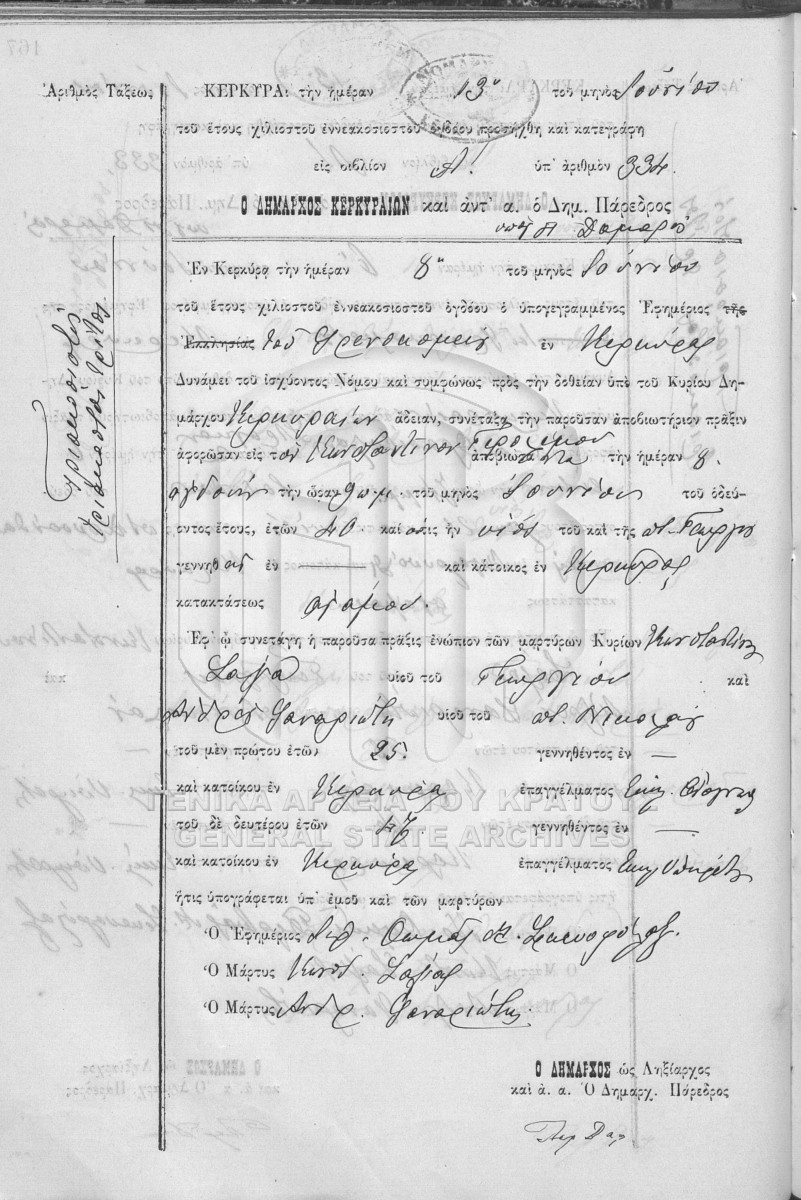 Ἀριθμὸς Τάξεως
Τριακοστὸς
τριακόσια τρίτος
ΚΕΡΚΥΡΑ: τὴν ἡμέραν 13η τοῦ μηνὸς Ἰουνίου
τοῦ ἔτους χιλιοστοῦ ἐννεακοσιοστοῦ ὀγδόου προσήχθη καὶ κατεγράφη
εἰς βιβλίον Α! ὑπ' ἀριθμὸν 334
Ο ΔΗΜΑΡΧΟΣ ΚΕΡΚΥΡΑΙΩΝ καὶ ἀντ' α. ὁ Δημ. Πάρεδρος
Ἐν Κερκύρᾳ τὴν ἡμέραν 8η τοῦ μηνὸς Ἰουνίου
τοῦ ἔτους χιλιοστοῦ ἐννεακοσιοστοῦ ὀγδόου ὁ ὑπογεγραμμένος Ἐφημέριος τῆς
Ἐκκλησίας τοῦ Φρενοκομείου ἐν Κερκύρᾳ
Δυνάμει τοῦ ἰσχύοντος Νόμου καὶ συμφώνως πρὸς τὴν δοθεῖσαν ὑπὸ τοῦ Κυρίου Δη-
μάρχου Κερκυραίων ἄδειαν, συνέταξα τὴν παροῦσαν ἀποβιωτήριον πρᾶξιν
ἀφορῶσαν εἰς τὸν Κωνσταντῖνον ἀποβιώσαντα τὴν ἡμέραν 8.
ὀγδόην τὴν ὥραν 9 π.μ. τοῦ μηνὸς Ἰουνίου τοῦ ὁδεύ-
οντος ἔτους, ἐτῶν 40 καὶ ὅστις ἦν υἱὸς τοῦ καὶ τῆς ποτ. Γεωργίου
γεννηθεὶς ἐν — καὶ κάτοικος ἐν Κερκύρᾳ
κατακτάσεως ἀγάμου.
Ἐφ' ᾧ συνετάγη ἡ παροῦσα πρᾶξις ἐνώπιον τῶν μαρτύρων Κυρίων Κωνσταντίνου
υἱοῦ τοῦ Γεωργίου καὶ
Ἀνδρέα Φαναριώτη υἱοῦ τοῦ ποτ. Νικολάου
τοῦ μὲν πρώτου ἐτῶν 25. γεννηθέντος ἐν —
καὶ κατοίκου ἐν Κερκύρᾳ ἐπαγγέλματος
τοῦ δὲ δευτέρου ἐτῶν 47. γεννηθέντος ἐν —
καὶ κατοίκου ἐν Κερκύρᾳ ἐπαγγέλματος
ἥτις ὑπογράφεται ὑπ' ἐμοῦ καὶ τῶν μαρτύρων
Ὁ Ἐφημέριος
Ὁ Μάρτυς Κωνστ.
Ὁ Μάρτυς Ἀνδρ. Φαναριώτης
Ο ΔΗΜΑΡΧΟΣ ὡς Ληξίαρχος
καὶ ἀ. α. Ὁ Δημαρχ. Πάρεδρος
ΓΕΝΙΚΑ ΑΡΧΕΙΑ ΤΟΥ ΚΡΑΤΟΥΣ
GENERAL STATE ARCHIVES